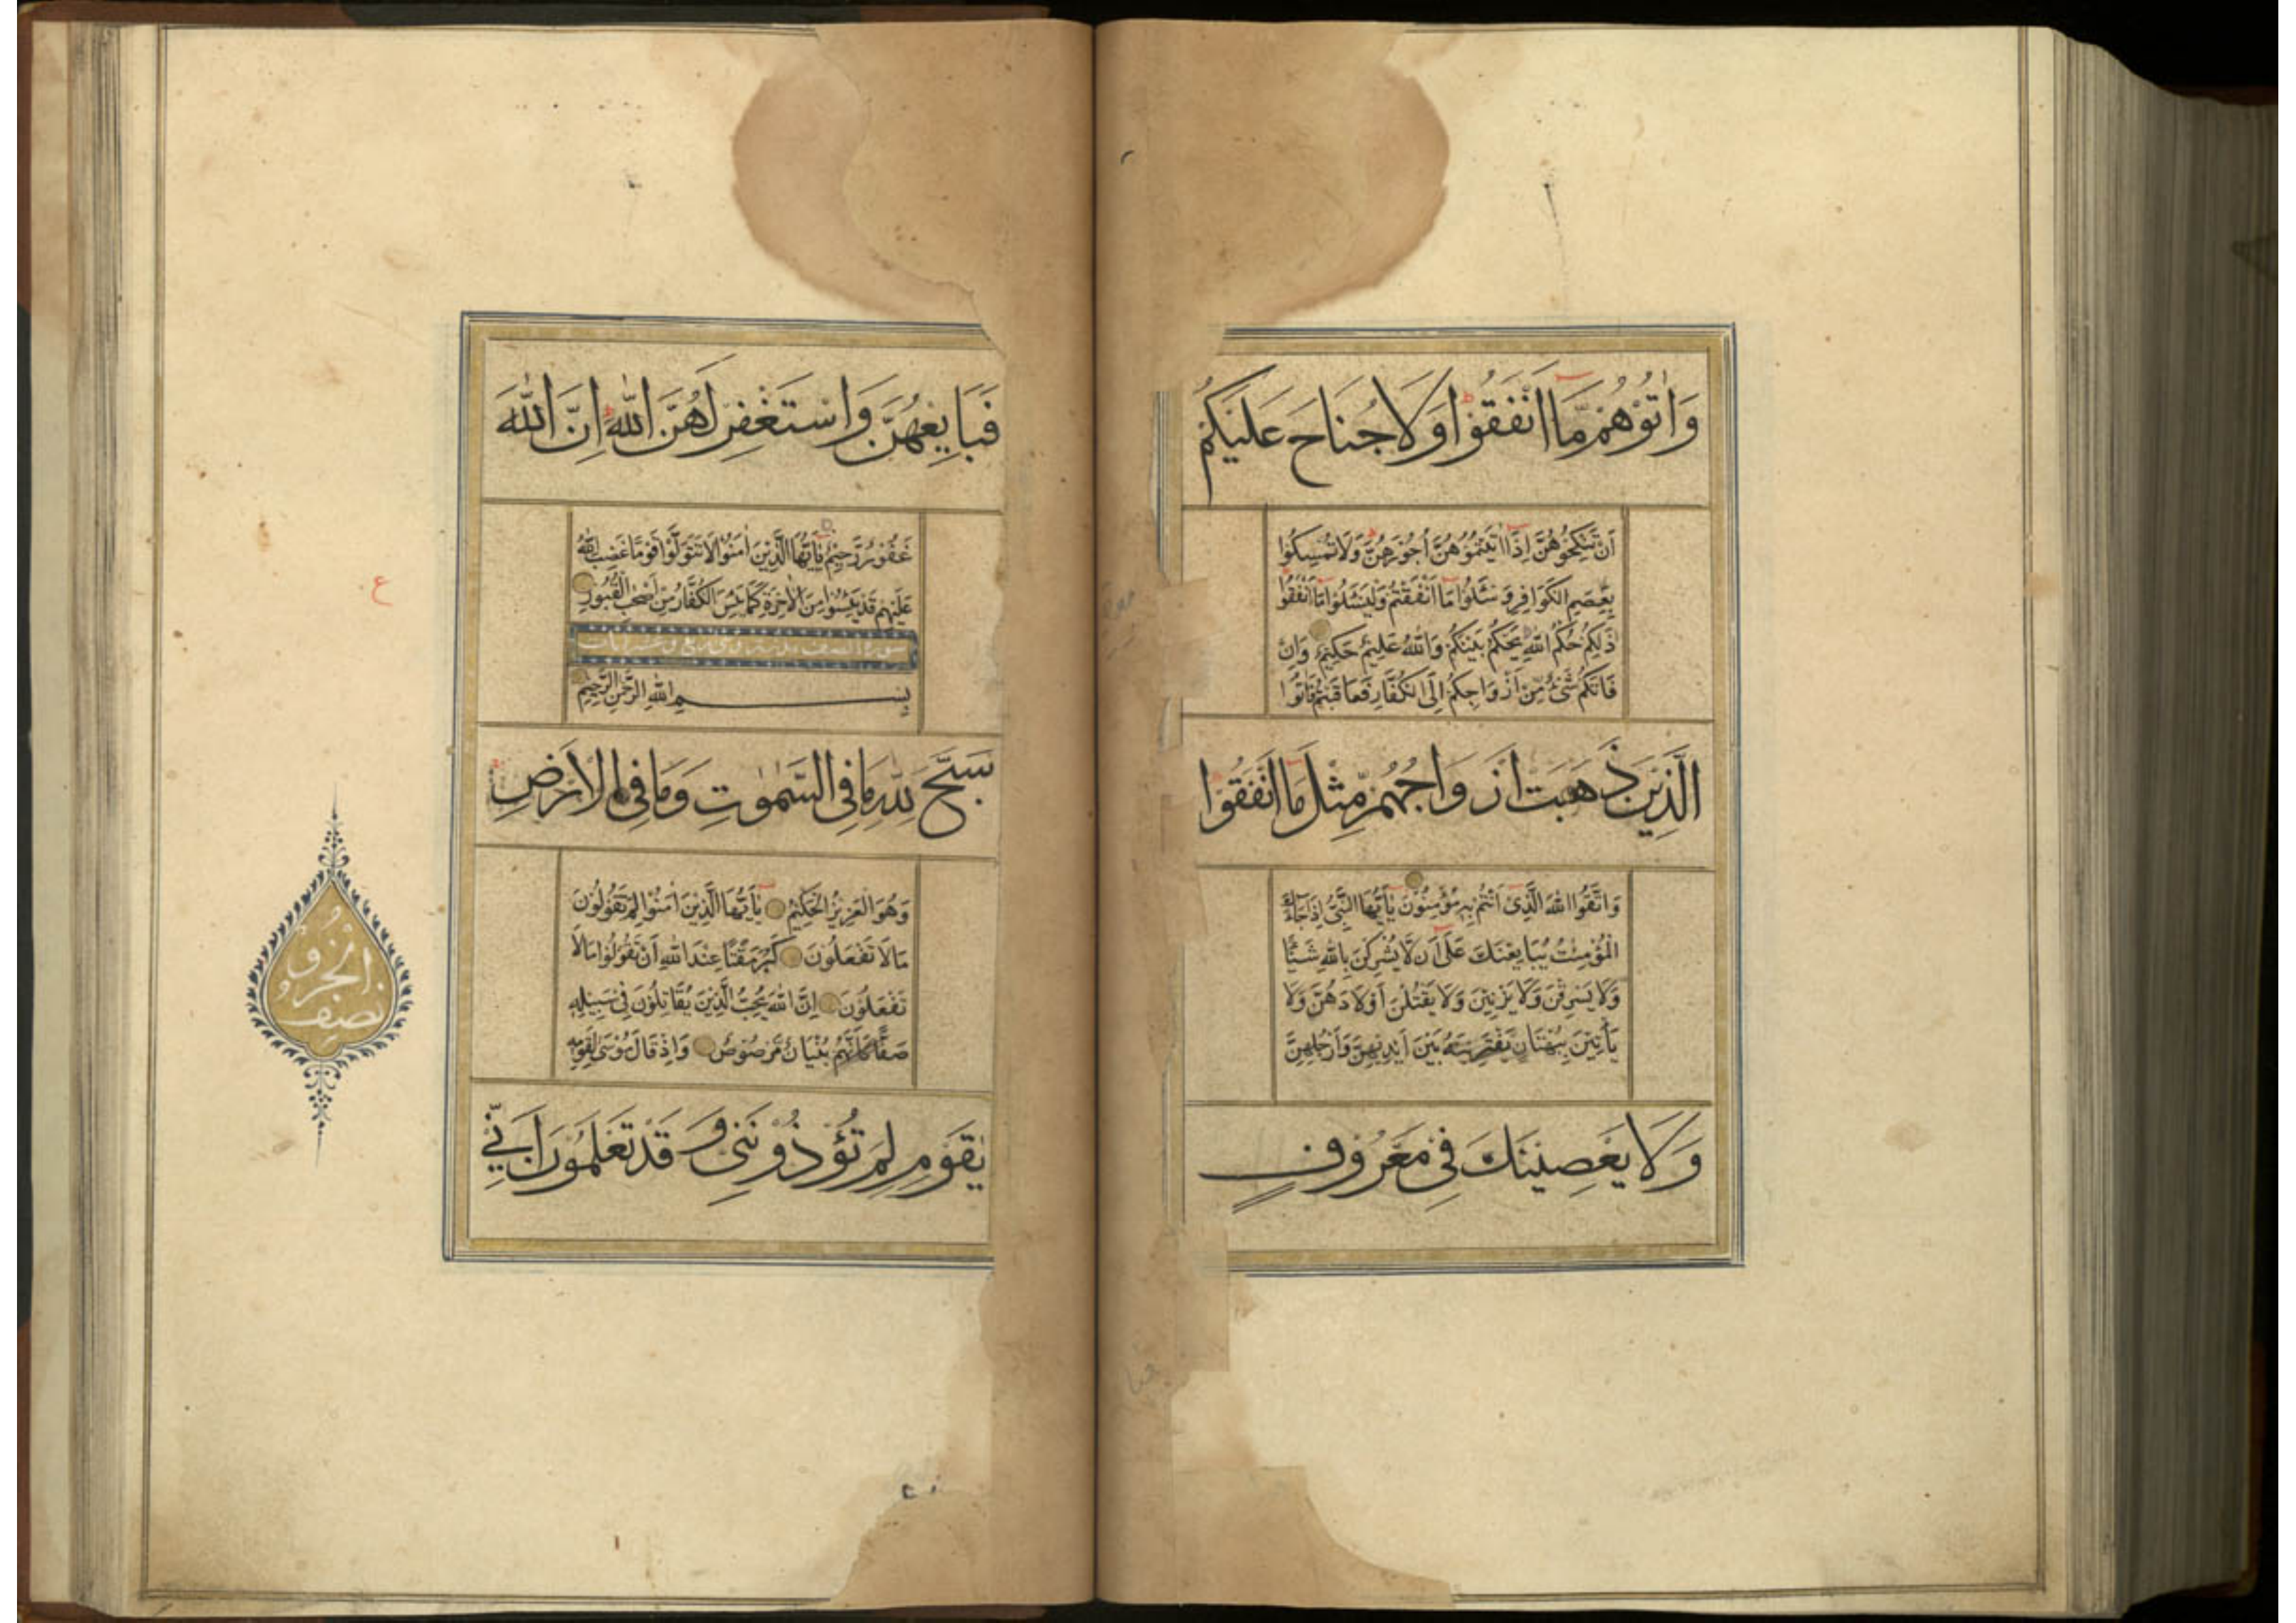 وَاٰتُوْهُمْ مَّا اَنْفَقُوْا وَلَا جُنَاحَ عَلَيْكُمْ
اَنْ تَنْكِحُوْهُنَّ اِذَا اٰتَيْتُمُوْهُنَّ اُجُوْرَهُنَّ وَلَا تُمْسِكُوْا
بِعِصَمِ الْكَوَافِرِ وَسْـَٔلُوْا مَا اَنْفَقْتُمْ وَلْيَسْـَٔلُوْا مَا اَنْفَقُوْا
ذٰلِكُمْ حُكْمُ اللّٰهِ يَحْكُمُ بَيْنَكُمْ وَاللّٰهُ عَلِيْمٌ حَكِيْمٌ وَاِنْ
فَاتَكُمْ شَىْءٌ مِّنْ اَزْوَاجِكُمْ اِلَى الْكُفَّارِ فَعَاقَبْتُمْ فَاٰتُوا
الَّذِيْنَ ذَهَبَتْ اَزْوَاجُهُمْ مِّثْلَ مَا اَنْفَقُوْا
وَاتَّقُوا اللّٰهَ الَّذِىْ اَنْتُمْ بِهٖ مُؤْمِنُوْنَ يٰاَيُّهَا النَّبِىُّ اِذَا جَاءَكَ
الْمُؤْمِنٰتُ يُبَايِعْنَكَ عَلٰى اَنْ لَّا يُشْرِكْنَ بِاللّٰهِ شَيْـًٔا
وَلَا يَسْرِقْنَ وَلَا يَزْنِيْنَ وَلَا يَقْتُلْنَ اَوْلَادَهُنَّ وَلَا
يَأْتِيْنَ بِبُهْتَانٍ يَّفْتَرِيْنَهُ بَيْنَ اَيْدِيْهِنَّ وَاَرْجُلِهِنَّ
وَلَا يَعْصِيْنَكَ فِىْ مَعْرُوْفٍ
فَبَايِعْهُنَّ وَاسْتَغْفِرْ لَهُنَّ اللّٰهَ اِنَّ اللّٰهَ
غَفُوْرٌ رَّحِيْمٌ يٰاَيُّهَا الَّذِيْنَ اٰمَنُوْا لَا تَتَوَلَّوْا قَوْمًا غَضِبَ اللّٰهُ
عَلَيْهِمْ قَدْ يَئِسُوْا مِنَ الْاٰخِرَةِ كَمَا يَئِسَ الْكُفَّارُ مِنْ اَصْحٰبِ الْقُبُوْرِ
سورة الصف
بِسْمِ اللّٰهِ الرَّحْمٰنِ الرَّحِيْمِ
سَبَّحَ لِلّٰهِ مَا فِى السَّمٰوٰتِ وَمَا فِى الْاَرْضِ
وَهُوَ الْعَزِيْزُ الْحَكِيْمُ يٰاَيُّهَا الَّذِيْنَ اٰمَنُوْا لِمَ تَقُوْلُوْنَ
مَا لَا تَفْعَلُوْنَ كَبُرَ مَقْتًا عِنْدَ اللّٰهِ اَنْ تَقُوْلُوْا مَا لَا
تَفْعَلُوْنَ اِنَّ اللّٰهَ يُحِبُّ الَّذِيْنَ يُقَاتِلُوْنَ فِىْ سَبِيْلِهٖ
صَفًّا كَاَنَّهُمْ بُنْيَانٌ مَّرْصُوْصٌ وَاِذْ قَالَ مُوْسٰى لِقَوْمِهٖ
يٰقَوْمِ لِمَ تُؤْذُوْنَنِىْ وَقَدْ تَعْلَمُوْنَ اَنِّىْ
ع
نصف
الجزو